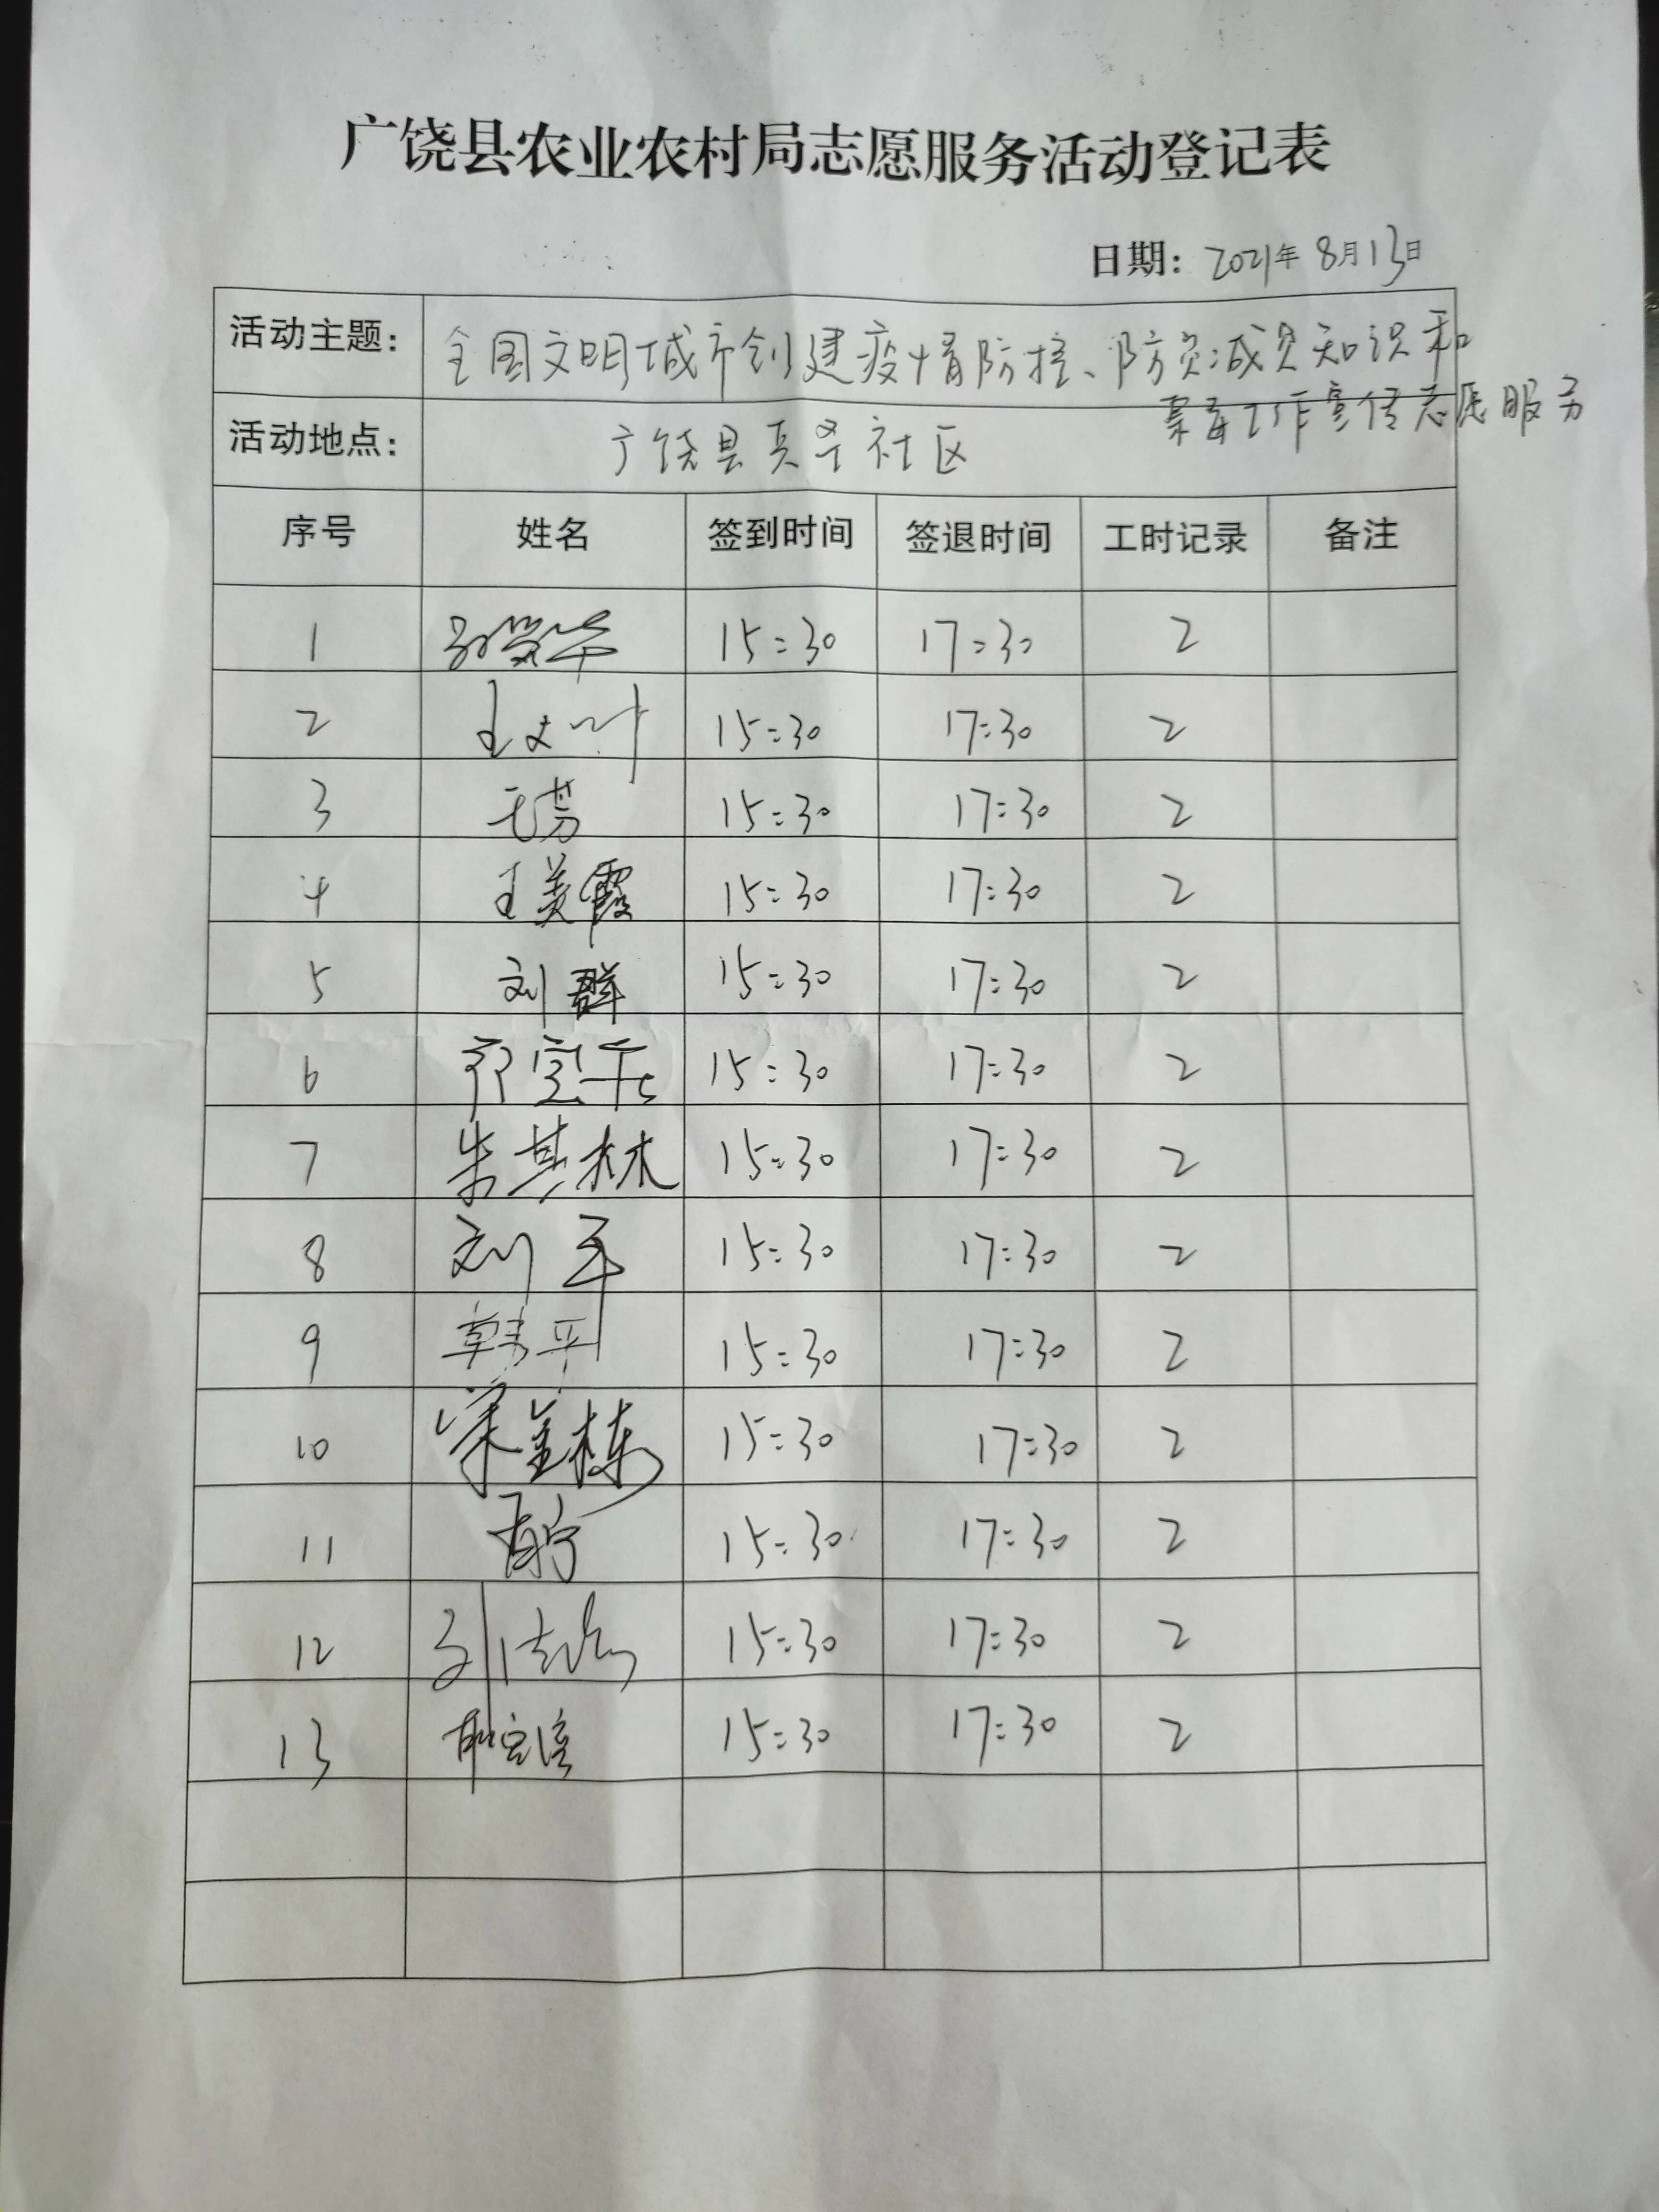 广饶县农业农村局志愿服务活动登记表
日期: 2021年8月13日
活动主题: 全国文明城市创建疫情防控、防灾减灾知识和
禁毒工作宣传志愿服务
活动地点: 广饶县 社区
序号 姓名 签到时间 签退时间 工时记录 备注
1 15:30 17:30 2
2 15:30 17:30 2
3 15:30 17:30 2
4 王美霞 15:30 17:30 2
5 刘群 15:30 17:30 2
6 15:30 17:30 2
7 朱其林 15:30 17:30 2
8 刘军 15:30 17:30 2
9 韩平 15:30 17:30 2
10 宋金栋 15:30 17:30 2
11 15:30 17:30 2
12 15:30 17:30 2
13 15:30 17:30 2